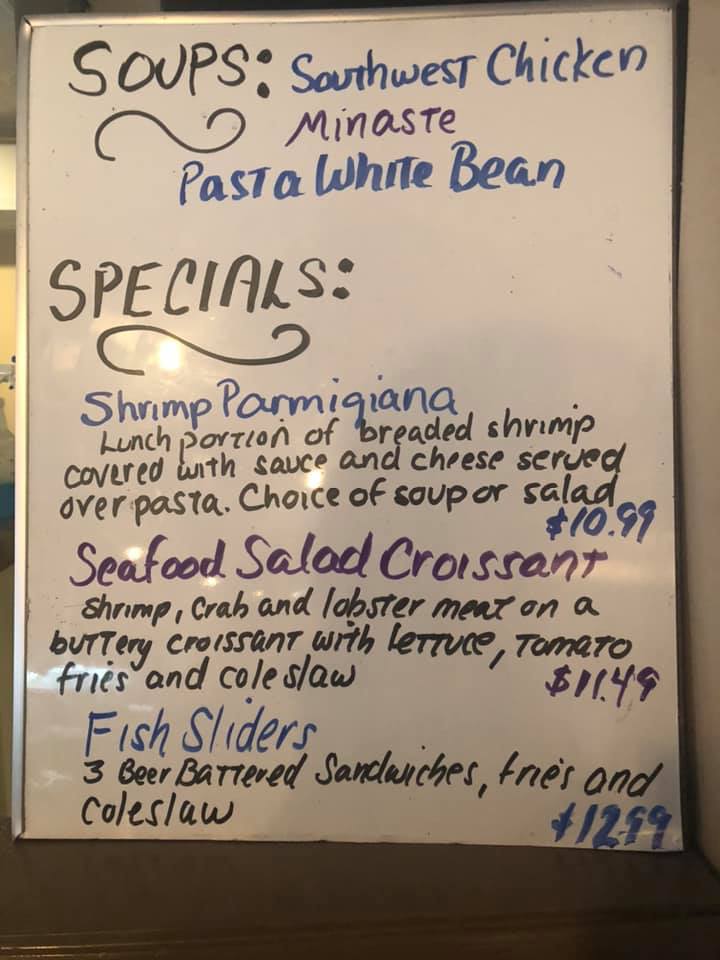 SOUPS: Southwest Chicken
Minaste
Pasta White Bean
SPECIALS:
Shrimp Parmigiana
Lunch portion of breaded shrimp
covered with sauce and cheese served
over pasta. Choice of soup or salad
$10.99
Seafood Salad Croissant
Shrimp, Crab and lobster meat on a
buttery croissant with lettuce, tomato
fries and coleslaw
$11.49
Fish Sliders
3 Beer Battered Sandwiches, fries and
coleslaw
$12.99